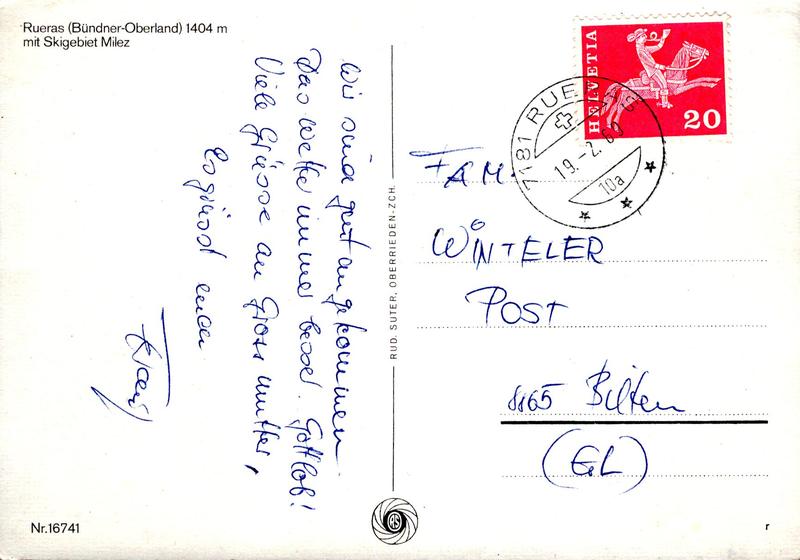 Rueras (Bündner-Oberland) 1404 m
mit Skigebiet Milez
Wir sind gut angekommen
Das Wetter immer besser. Gottlob!
Viele Grüsse an Grossmutter,
Es grüsst euch
RUD. SUTER, OBERRIEDEN-ZCH.
HELVETIA
20
7181 RUERAS
19.-2.69
10a
FAM.
WINTELER
POST
8865 Bilten
(GL)
Nr.16741
RS
r